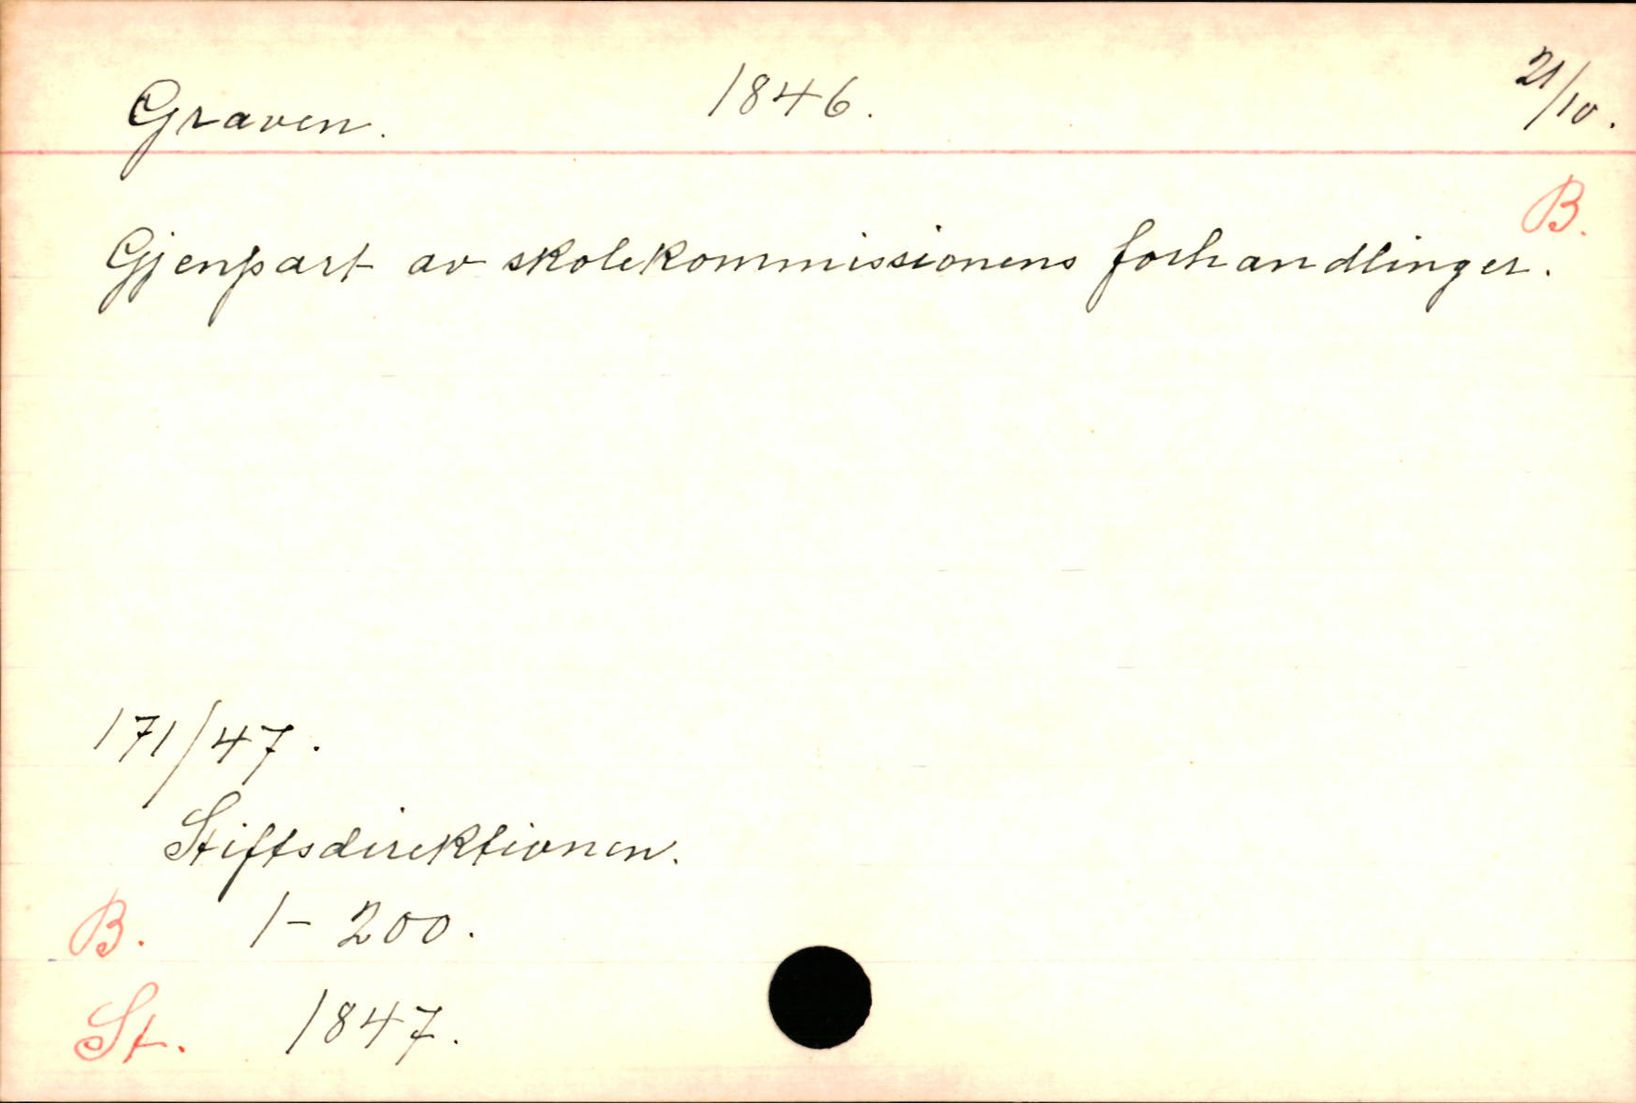 Graven. 1846. 21/10.
B.
Gjenpart av skolekommissionens forhandlinger.
171/47.
Stiftsdirektionen.
B. 1-200.
St. 1847.